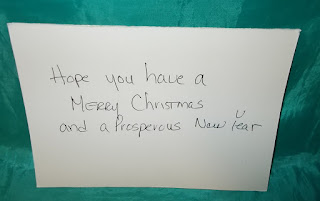 Hope you have a
Merry Christmas
and a Prosperous New Year